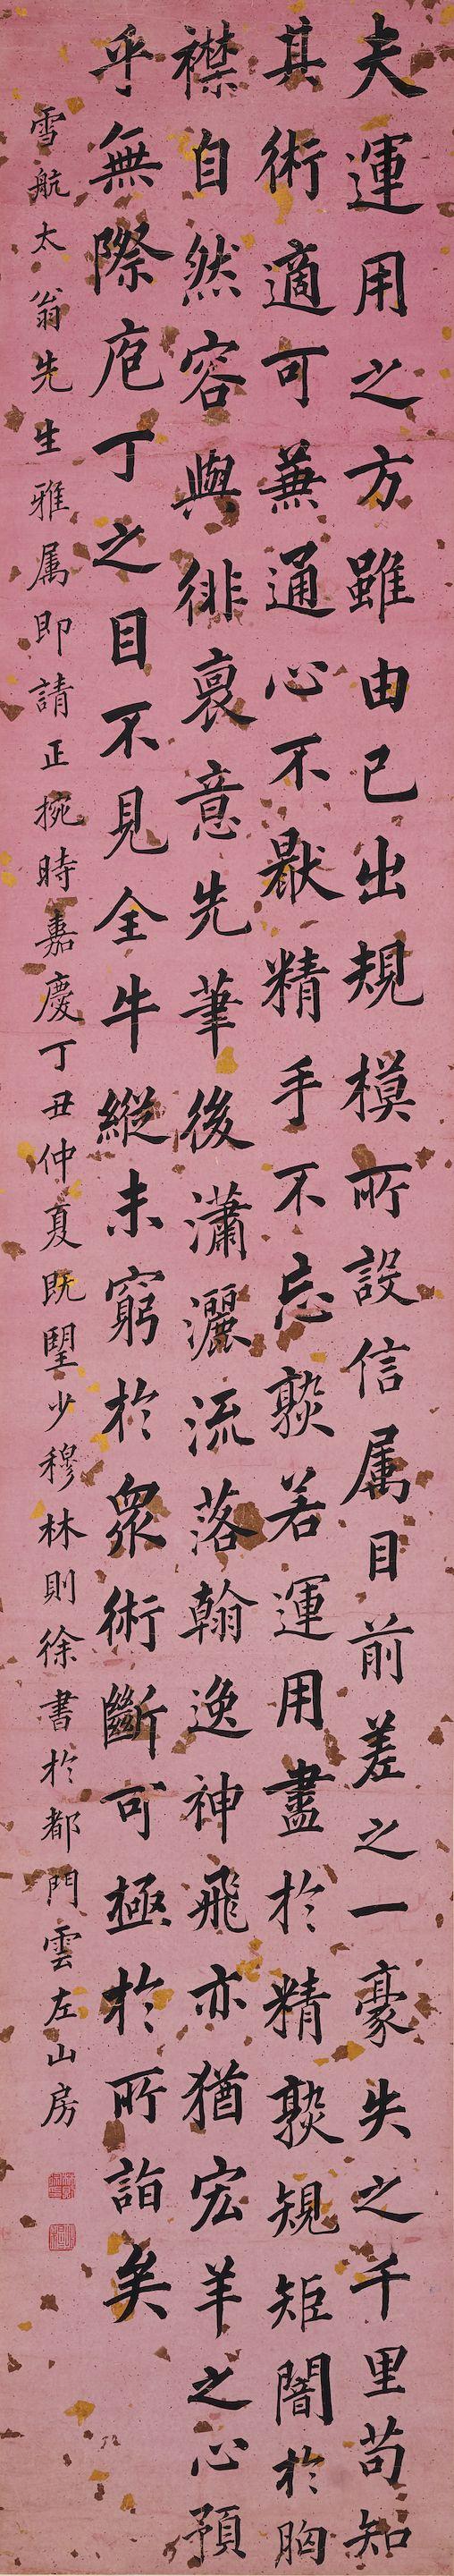 夫運用之方雖由己出規模所設信属目前差之一豪失之千里苟知
其術適可蒹通心不猒精手不忘𤍨若運用盡於精𤍨規矩闇於胸
襟自然容與徘裵意先筆後瀟灑流落翰逸神飛亦猶宏羊之心預
乎無際庖丁之目不見全牛縱未窮於眾術斷可極於所詣矣
雪航太翁先生雅属即請正捥時嘉慶丁丑仲夏既朢少穆林則徐書於都門雲左山房